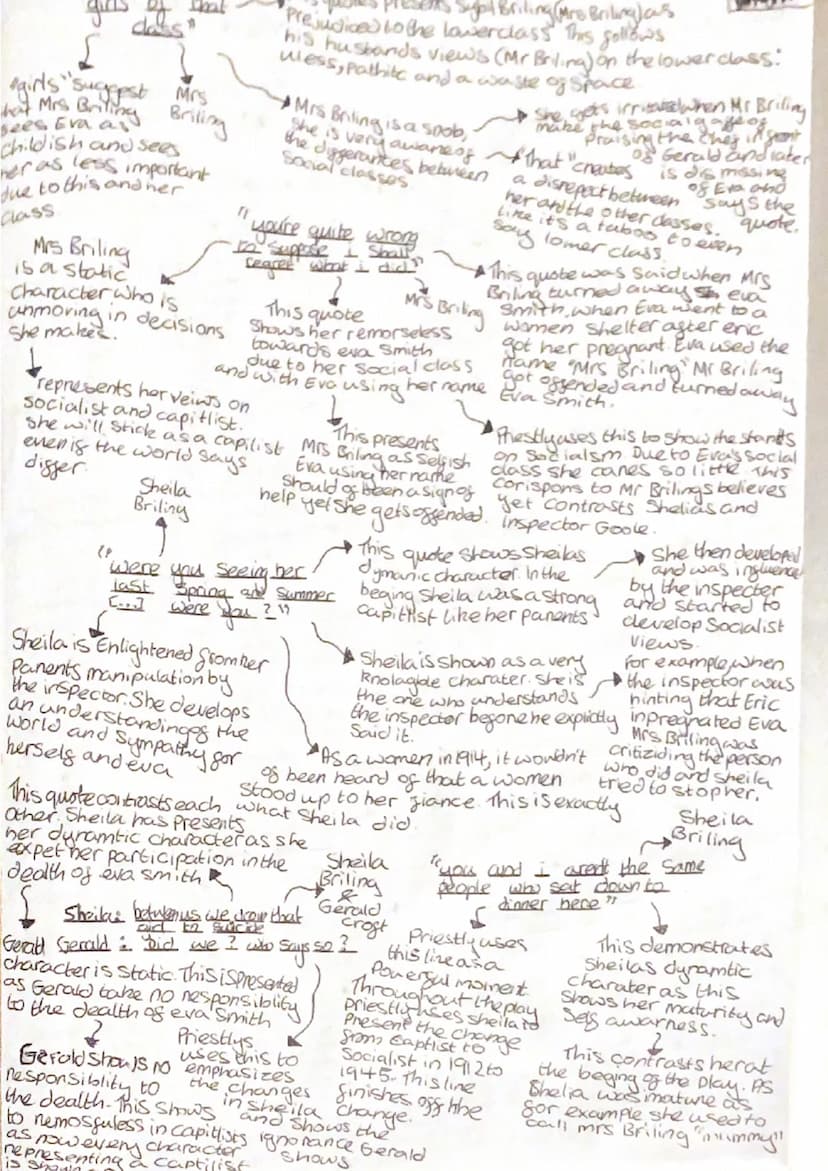 girls of that
class"
quotes presents Sybil Briling (Mrs Briling) as
Prejudiced to the lowerclass This follows
his husbands views (Mr Briling) on the lower class:
uless, pathitc and a waste of space.
"girls" suggest
that Mrs Briling
sees Eva as
childish and sees
her as less important
due to this and her
class
Mrs
Briling
Mrs Briling is a snob,
She is very aware of
the differances between
social classes.
She gets irritated when Mr Briling
make the social gaffe of
praising the chef infront
of Gerald and later
is dismissing
of Eva and
says the
quote.
"That" creates
a disrepect between
her and the other classes.
like it's a taboo to even
say lower class.
"you're quite wrong
to suppose i shall
regret what i did"
Mrs Briling
is a static
character who is
unmoving in decisions
she makes.
represents her veiws on
socialist and capitlist.
she will stick as a capilist
even if the world says
differ
This quote
shows her remorseless
towards eva smith
due to her social class
and with Eva using her name
This presents
Mrs Briling as selfish
Eva using her name
should of been a sign of
help yet she gets offended.
Mrs Briling
This quote was said when Mrs
Briling turned away eva
Smith, when Eva went to a
women shelter after eric
got her pregnant. Eva used the
name "Mrs Briling" Mr Briling
got offended and turned away
Eva Smith.
Priestly uses this to show the stands
on socialsm. Due to Eva's social
class she cares so little. This
corispons to Mr Brilings believes
yet contrasts Shelias and
Inspector Goole.
Sheila
Briling
"were you seeing her
last spring and summer
[...] were you?"
This quote shows Sheilas
dymanic character. In the
beging Sheila was a strong
capitlist like her parents
She then developed
and was influence
by the inspecter
and started to
develop Socialist
views.
Sheila is Enlightened from her
Parents manipulation by
the inspector. She develops
an understanding of the
world and sympathy for
herself and eva
Sheila is shown as a very
knolagable charater. she is
the one who understands
the inspector begore he explictly
said it.
for example, when
the inspector was
hinting that Eric
inpregnated Eva
Mrs Briling was
critiziding the person
who did and sheila
tried to stop her.
As a women in 1914, it wouldn't
of been heard of that a women
stood up to her fiance. This is exactly
what Sheila did.
This quote contrasts each
other. Sheila has presents
her dyramtic character as she
expet her participation in the
dealth of eva smith
Sheila
Briling
&
Gerald
Croft
Sheila: between us we drove that
girl to suicide
Gerald: Did we? who says so?
Gerald
character is static. This is presented
as Gerald take no responsiblity
to the dealth of eva smith
Gerald show is no
responsiblity to
the death. This shows
to remosfuless in capitlists
as now every character
representing a captilist
Priestlys
uses this to
emphasizes
the changes
in sheila
and shows the
ignorance Gerald
shows
Sheila
Briling
"you and i aren't the same
people who sat down to
dinner here"
Priestly uses
this line as a
Powerful moment.
Throughout the play
Priestly uses sheila to
Present the change
from captist to
Socialist in 1912 to
1945. This line
finishes off the
change.
This demonstrates
Sheilas dyramtic
charater as this
shows her maturity and
self awarness.
This contrasts her at
the beging of the play. As
Shelia was mature as
for example she used to
call mrs Briling "mummy"